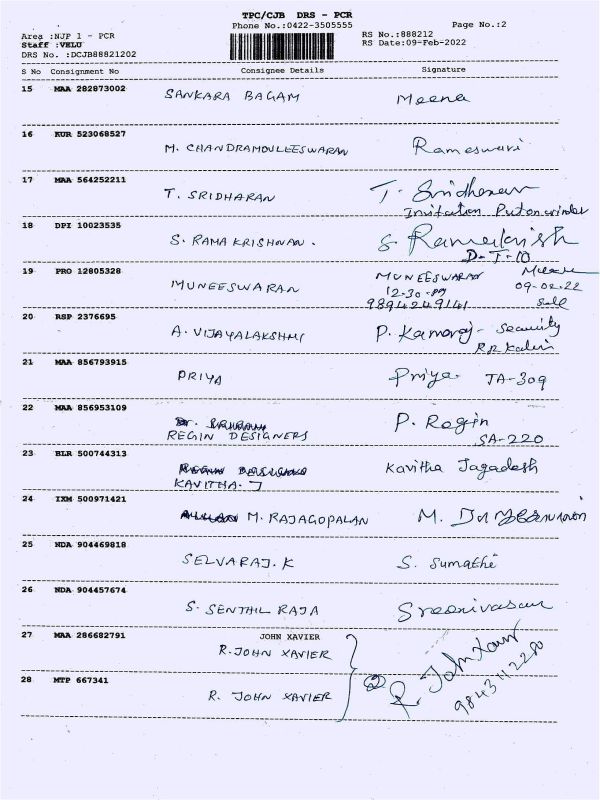 TPC/CJB DRS - PCR
Phone No.:0422-3505555
Page No.:2
Area :NJP 1 - PCR
RS No.:888212
Staff :VELU
RS Date:09-Feb-2022
DRS No. :DCJB88821202
S No Consignment No Consignee Details Signature
15 MAA 282873002 SANKARA BAGAM Meena
16 KUR 523068527 M. CHANDRAMOULEESWARAN Rameswari
17 MAA 564252211 T. SRIDHARAN T. Sridharan
Invitation Put on window
18 DPI 10023535 S. RAMAKRISHNAN. S. Ramakrish
D-T-10
19 PRO 12805328 MUNEESWARAN MUNEESWARAN
12-30-PM 09-02-22
9894249141
20 RSP 2376695 A. VIJAYALAKSHMI P. Kamaraj - Security
21 MAA 856793915 PRIYA Priya JA-309
22 MAA 856953109 REGIN DESIGNERS P. Regin
SA-220
23 BLR 500744313 KAVITHA. J Kavitha Jagadesh
24 IXM 500971421 M. RAJAGOPALAN M.
25 NDA 904469818 SELVARAJ. K S. Sumathi
26 NDA 904457674 S. SENTHIL RAJA Sreenivasan
27 MAA 286682791 JOHN XAVIER
R. JOHN XAVIER
28 MTP 667341 R. JOHN XAVIER R. John Xavier